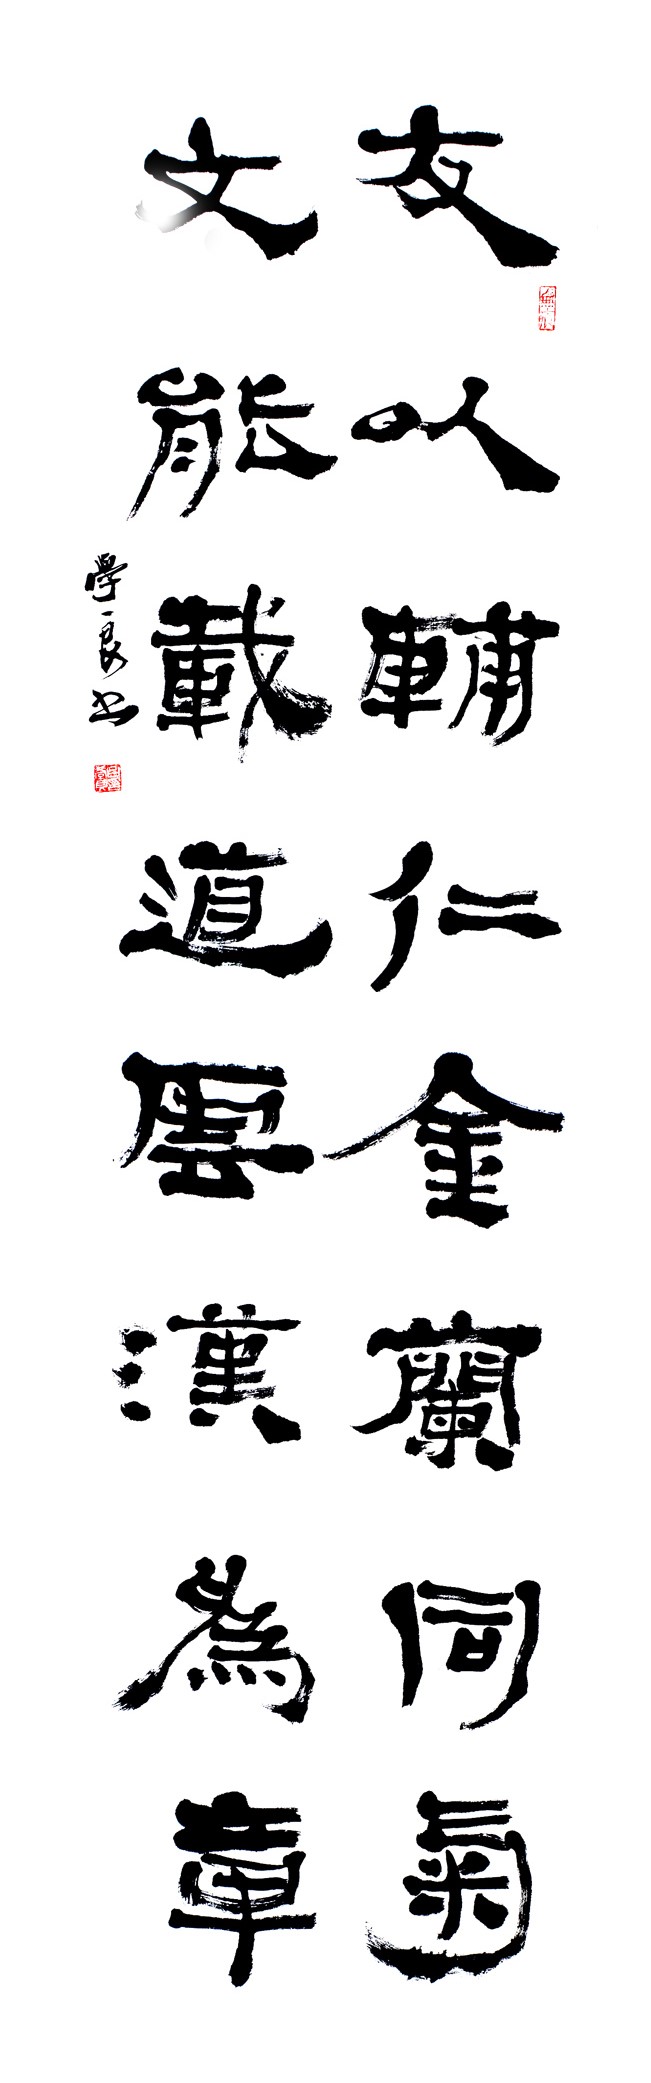 友以輔仁金蘭同氣
文能載道雲漢為章
學良书